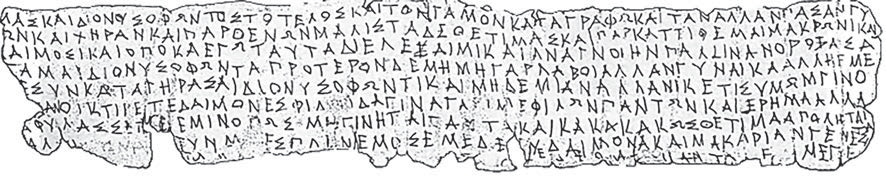 ΜΑΣΚΑΙΔΙΟΝΥΣΟΦΩΝΤΟΣΤΟΤΕΛΟΣΚΑΙΤΟΝΓΑΜΟΝΚΑΤΑΓΡΑΦΩΚΑΙΤΑΝΑΛΛΑΝΠΑΣΑΝΓΥ
ΩΝΚΑΙΧΗΡΑΝΚΑΙΠΑΡΘΕΝΩΝΜΑΛΙΣΤΑΔΕΘΕΤΙΜΑΣΚΑΙΠΑΡΚΑΤΤΙΘΕΜΑΙΜΑΚΡΩΝΙΚΑΙ
ΑΙΜΟΣΙΚΑΙΟΠΟΚΑΕΓΩΤΑΥΤΑΔΙΕΛΕΞΑΙΜΙΚΑΙΑΝΑΓΝΟΙΗΝΠΑΛΛΙΝΑΝΟΡΟΞΑΣΑ
ΓΑΜΑΙΔΙΟΝΥΣΟΦΩΝΤΑΠΡΟΤΕΡΟΝΔΕΜΗΜΗΓΑΡΛΑΒΟΙΑΛΛΑΝΓΥΝΑΙΚΑΑΛΛΗΕΜΕ
ΕΣΥΝΚΑΤΑΓΗΡΑΣΑΙΔΙΟΝΥΣΟΦΩΝΤΙΚΑΙΜΗΔΕΜΙΑΝΑΛΛΑΝΙΚΕΤΙΣΥΜΩΜΓΙΝΟ
ΑΝΟΙΚΤΙΡΕΤΕΔΑΙΜΟΝΕΣΦΙΛΟΙΔΑΓΙΝΑΓΑΡΙΜΕΦΙΛΩΝΠΑΝΤΩΝΚΑΙΕΡΗΜΑΑΛΛΑ
ΦΥΛΑΣΣΕΤΕΕΜΙΝΟΠΩΣΜΗΓΙΝΗΤΑΙΤΑΥΤΑΚΑΙΚΑΚΑΚΑΚΩΣΘΕΤΙΜΑΑΠΟΛΗΤΑΙ
ΑΛ ΥΝΜ ΕΣΠΛΗΝΕΜΟΣΕΜΕΔΕΕΥΔΑΙΜΟΝΑΚΑΙΜΑΚΑΡΙΑΝΓΕΝΕΣ
ΜΕΓΕ